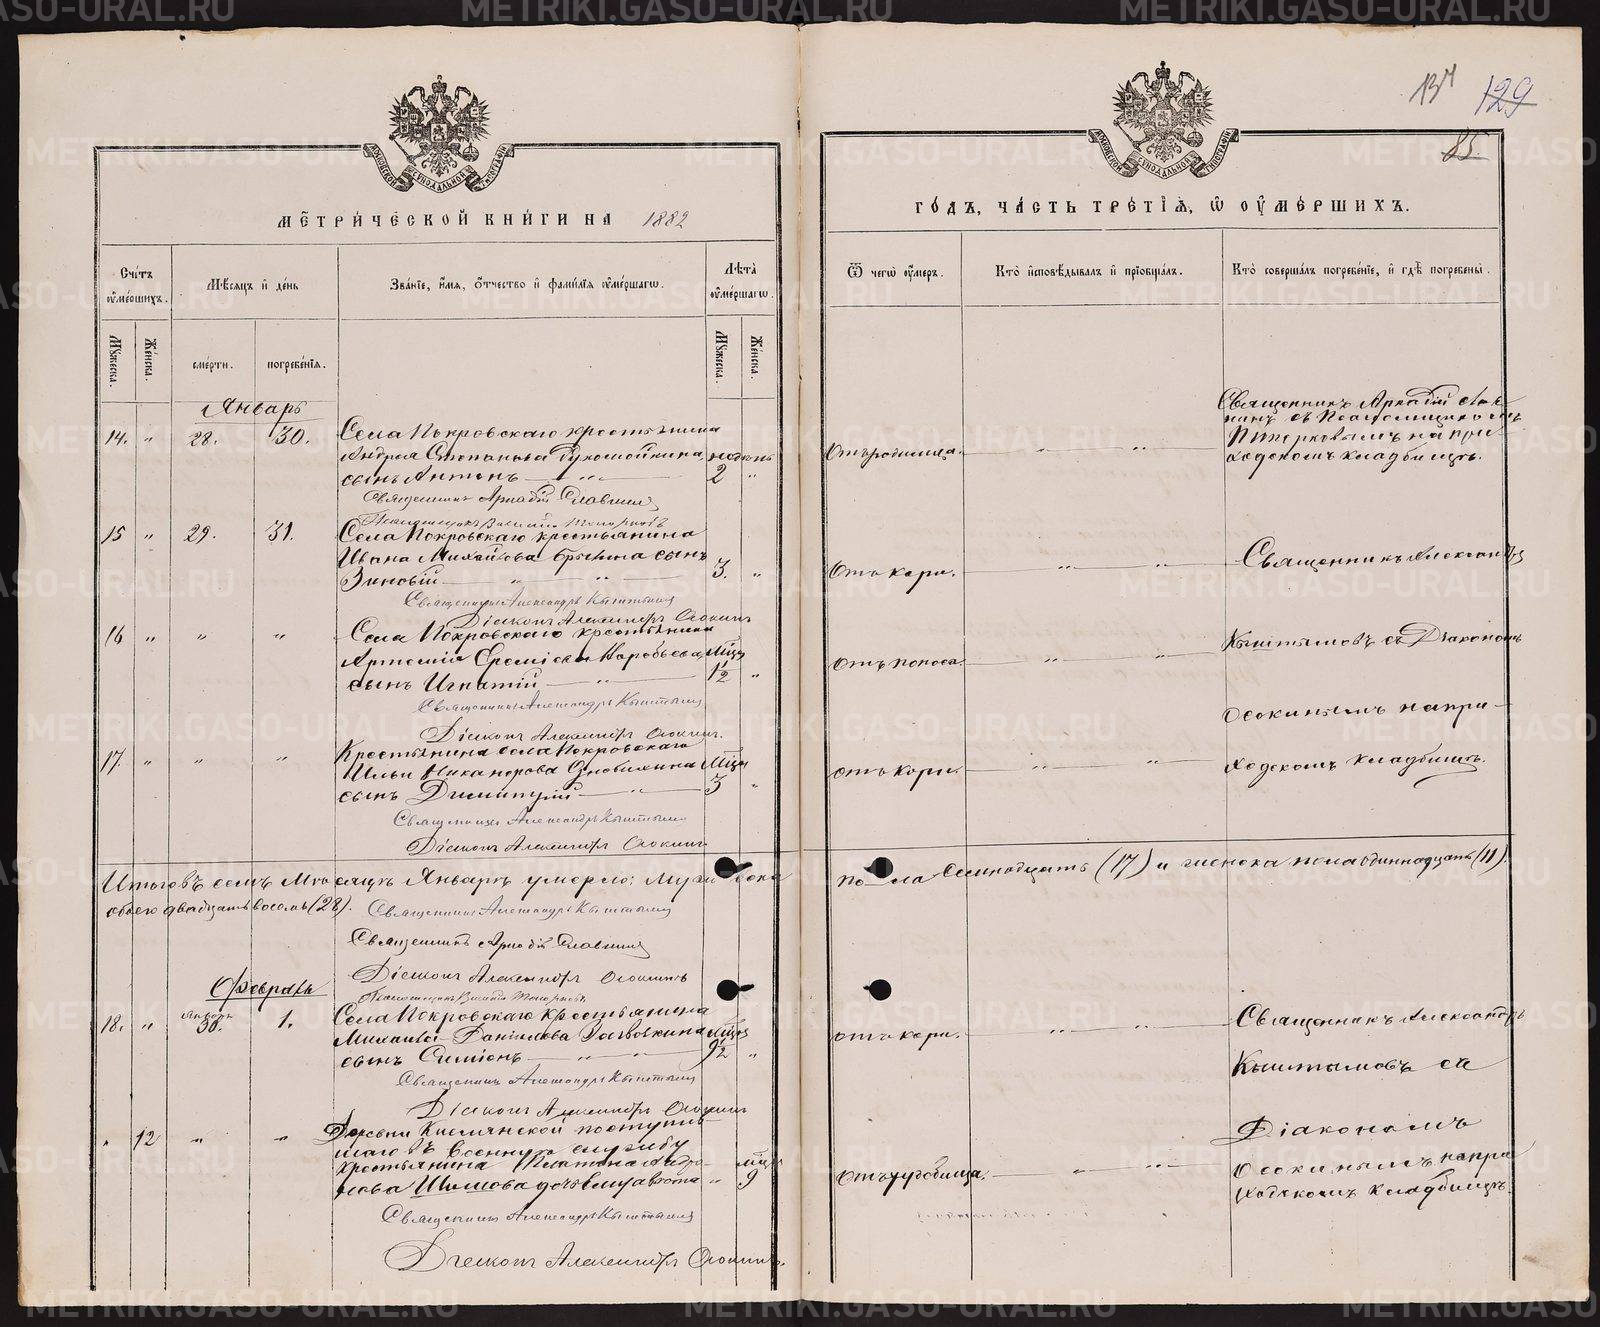 МЕТРИЧЕСКОЙ КНИГИ НА 1882
Счетъ оумершихъ.
Мѣсяцъ и день
Званіе, имя, отчество и фамилія оумершагω.
Лѣта оумершагω.
Мужеска.
Женска.
смерти.
погребенія.
Мужеска.
Женска.
Январь
14. " 28. 30. Села Покровскаго крестьянина
Андрея Степанова недель
сынъ Антонъ — " — 2 "
Священникъ Аркадій Славнинъ
Псаломщикъ
15 " 29. 31. Села Покровскаго крестьянина
Ивана Михайлова сынъ
Зиновій — " " — 3. "
Священникъ Александръ Кыштымовъ
Діаконъ Александръ Осокинъ
16 " " " Села Покровскаго крестьянина
Артемія Воробьева Мѣць
сынъ Игнатій — " — 1½ "
Священникъ Александръ Кыштымовъ
Діаконъ Александръ Осокинъ.
17. " " " Крестьянина села Покровскаго
Ильи Никанорова Мѣць
сынъ Димитрій — " — 3 "
Священникъ Александръ Кыштымовъ
Діаконъ Александръ Осокинъ
Итого въ семъ Мѣсяцѣ Январѣ умерло: Мужеска
обоего двадцать восемь (28).
Священникъ Александръ Кыштымовъ
Священникъ Аркадій Славнинъ
Діаконъ Александръ Осокинъ
Псаломщикъ
Февраль
18. " Января 30. 1. Села Покровскаго крестьянина
Михаила Данилова Мѣць
сынъ Симіонъ — " " — 9½ "
Священникъ Александръ Кыштымовъ
Діаконъ Александръ Осокинъ
" 12 " " Деревни поступив
шаго въ военную службу
крестьянина Платона мѣць
Шишова дочь " 9
Священникъ Александръ Кыштымовъ
Діаконъ Александръ Осокинъ.
129
85.
ГОДЪ, ЧАСТЬ ТРЕТІЯ, Ѡ ОУМЕРШИХЪ.
Ѿ чегω оумеръ.
Кто исповѣдывалъ и пріобщалъ.
Кто совершалъ погребеніе, и гдѣ погребены.
Священникъ Аркадій Слав
нинъ съ Псаломщикомъ
на при
ходскомъ кладбищѣ.
Отъ родимца. — " " —
Отъ кори. — " " — Священникъ Александръ
Отъ поноса. — " " — Кыштымовъ съ Діакономъ
Осокинымъ на при-
Отъ кори. — " " — ходскомъ кладбищѣ.
пола семнадцать (17) и женска пола одиннадцать (11).
Отъ кори. — " " — Священникъ Александръ
Кыштымовъ съ
Діакономъ
Отъ — " " — Осокинымъ на при
ходскомъ кладбищѣ.
МОСКОВСКОЙ СѴНОДАЛЬНОЙ ТИПОГРАФІИ
METRIKI.GASO-URAL.RU